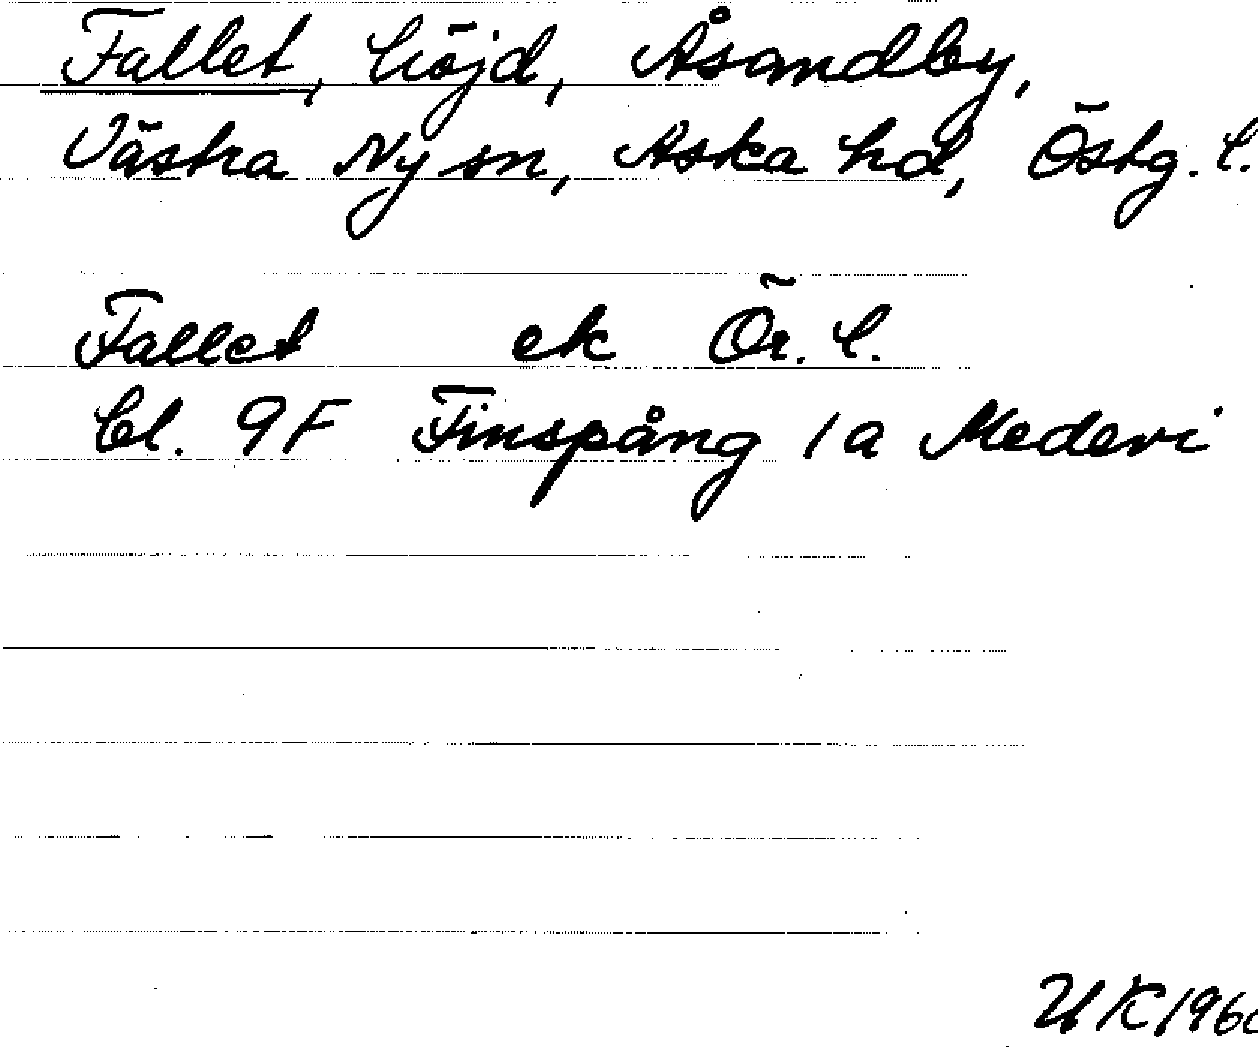 Fallet, höjd, Åsandby,
Västra Ny sn, Aska hd, Östg. l.
Fallet ek Ör. l.
bl. 9F Finspång 1a Medevi
UK 196